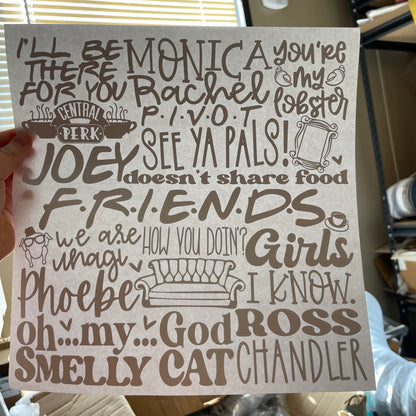 I'LL BE THERE FOR YOU
MONICA
you're my lobster
Rachel
P.I.V.O.T
CENTRAL PERK
SEE YA PALS!
JOEY doesn't share food
F.R.I.E.N.D.S
we are unagi
HOW YOU DOIN?
Girls
Phoebe
I KNOW.
oh...my...God
ROSS
SMELLY CAT
CHANDLER